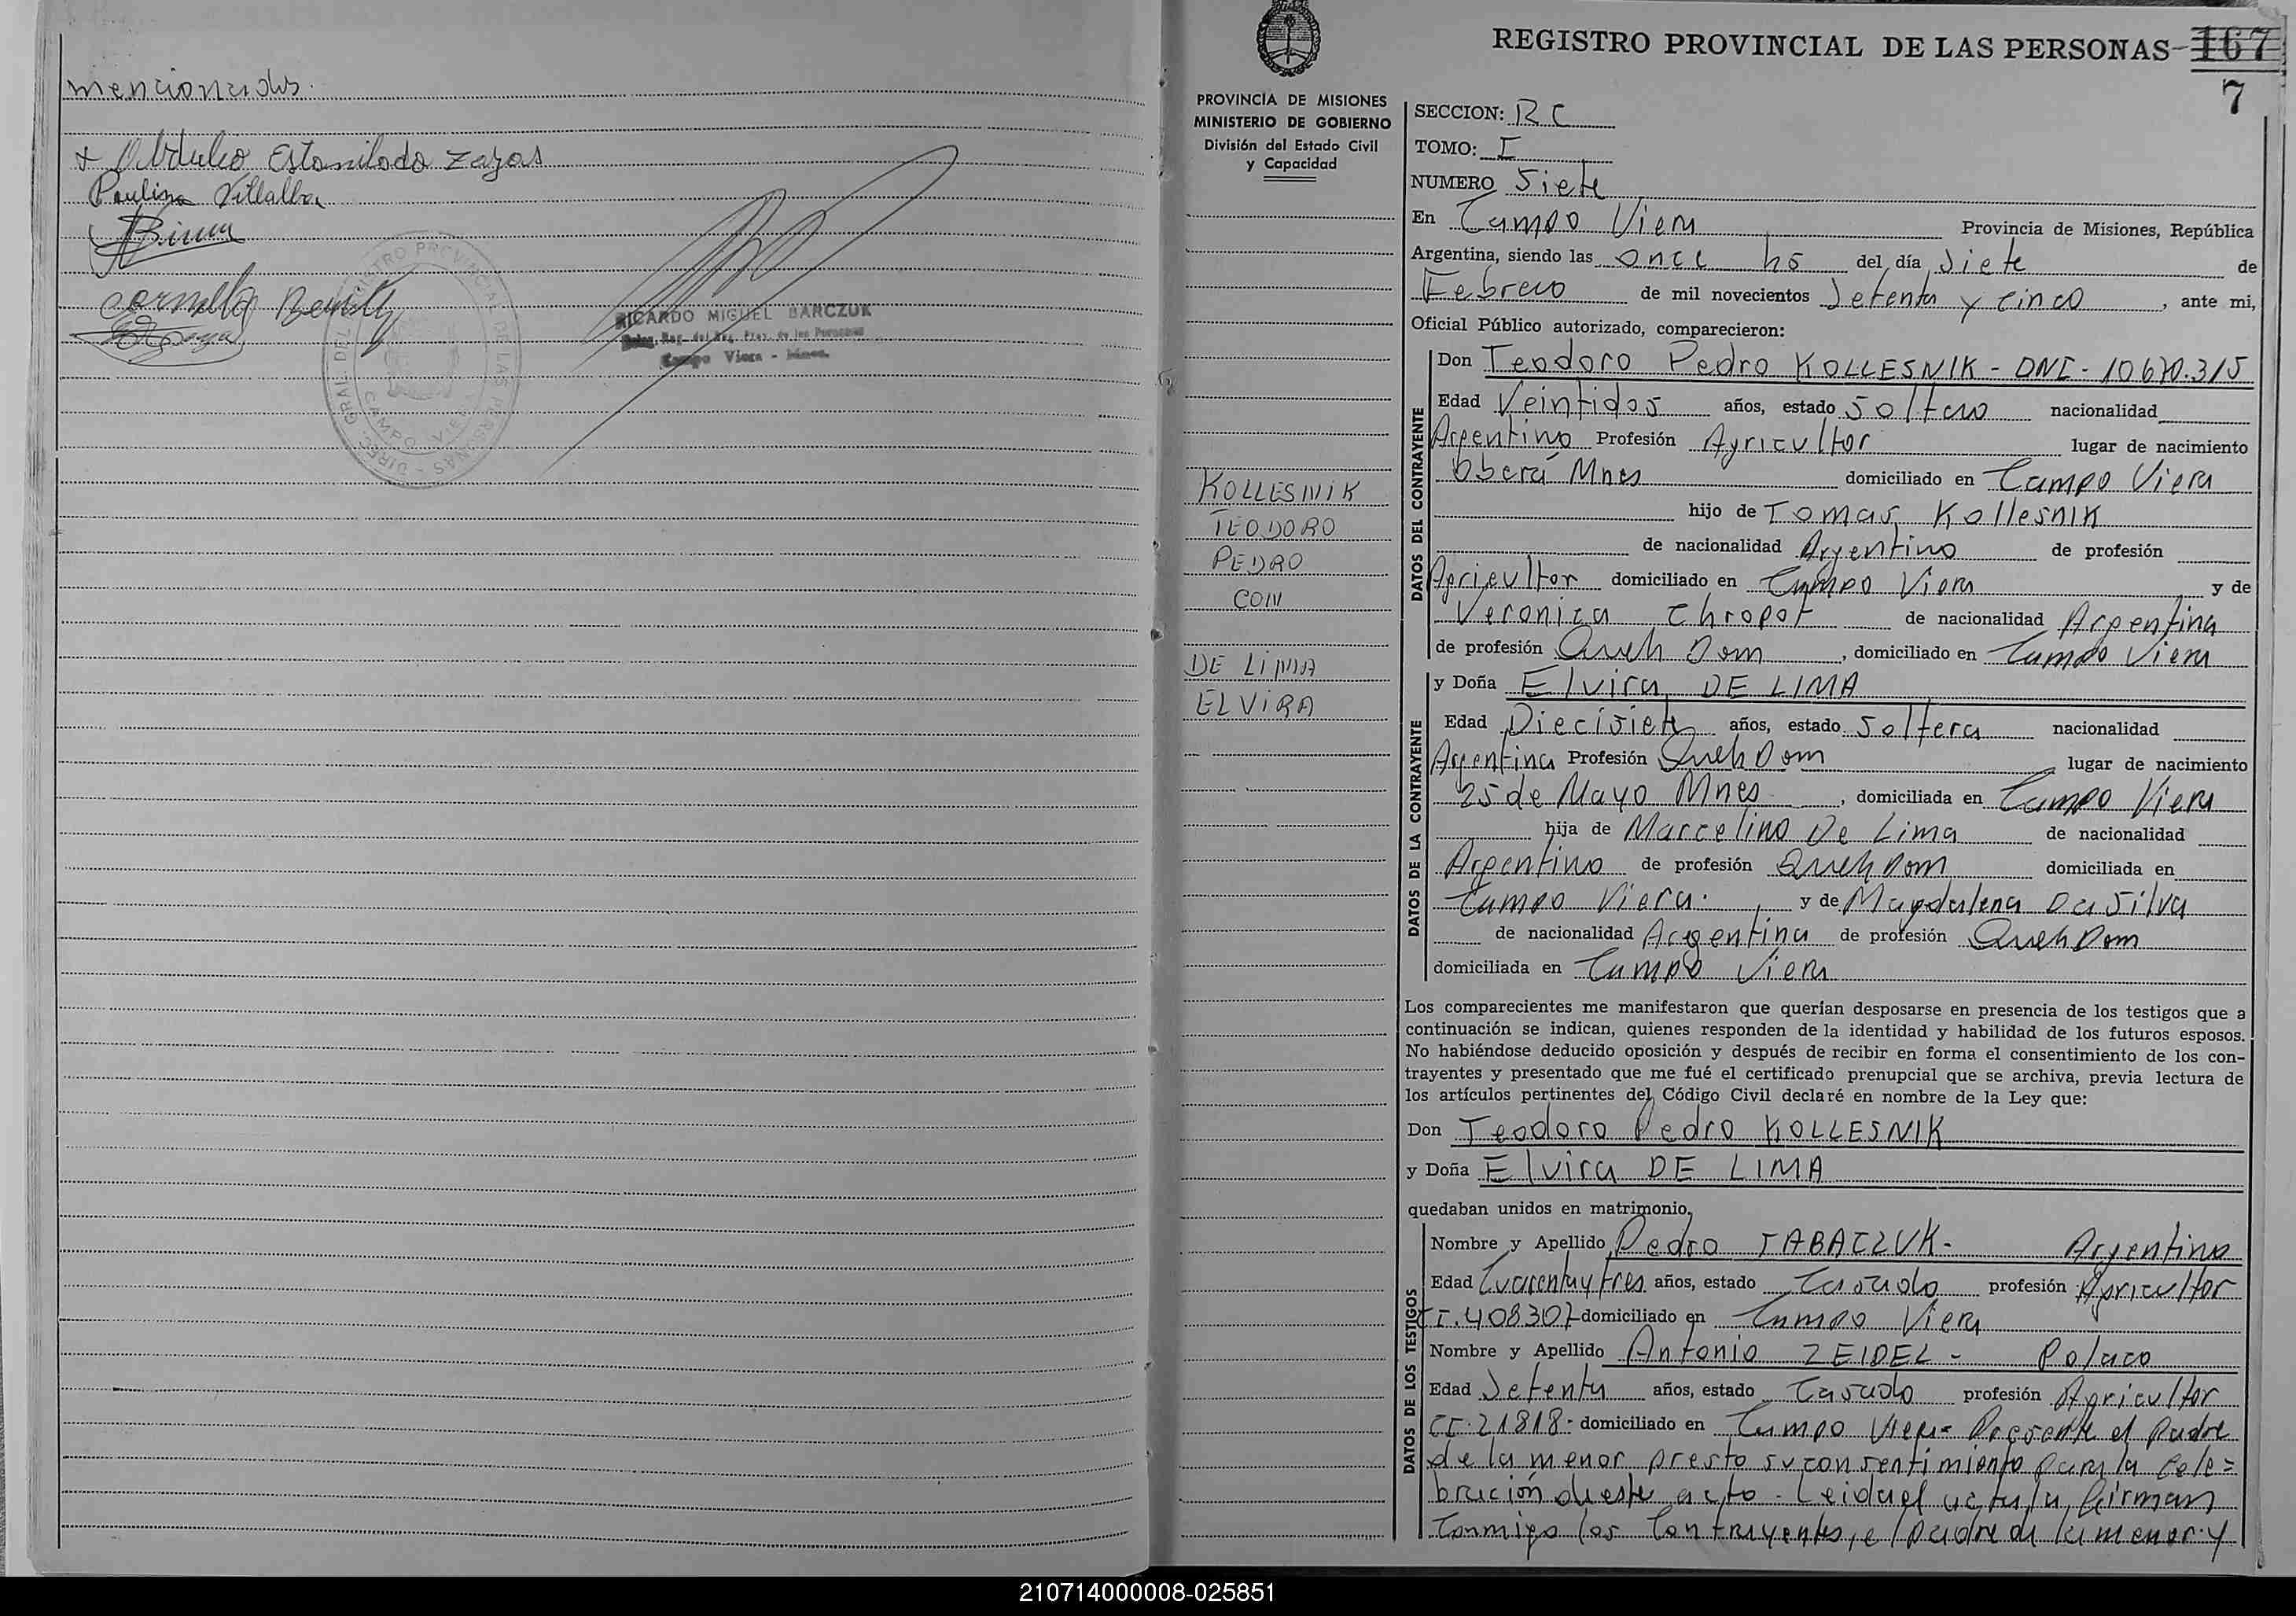 mencionados.
Estanilado Zayas
Paulina Villalba
RICARDO MIGUEL BARCZUK
Campo Viera - Mnes.
REGISTRO PROVINCIAL DE LAS PERSONAS 167
7
PROVINCIA DE MISIONES
MINISTERIO DE GOBIERNO
División del Estado Civil
y Capacidad
KOLLESNIK
TEODORO
PEDRO
CON
DE LIMA
ELVIRA
SECCION: RC
TOMO: I
NUMERO Siete
En Campo Viera Provincia de Misiones, República
Argentina, siendo las once hs del día Siete de
Febrero de mil novecientos Setenta y cinco, ante mi,
Oficial Público autorizado, comparecieron:
DATOS DEL CONTRAYENTE
Don Teodoro Pedro KOLLESNIK - DNI - 10670.315
Edad Veintidos años, estado soltero nacionalidad
Argentino Profesión Agricultor lugar de nacimiento
Oberá Mnes domiciliado en Campo Viera
hijo de Tomas Kollesnik
de nacionalidad Argentino de profesión
Agricultor domiciliado en Campo Viera y de
Veronica Chropot de nacionalidad Argentina
de profesión Queh Dom, domiciliado en Campo Viera
DATOS DE LA CONTRAYENTE
y Doña Elvira DE LIMA
Edad Diecisiete años, estado soltera nacionalidad
Argentina Profesión Queh Dom lugar de nacimiento
25 de Mayo Mnes, domiciliada en Campo Viera
hija de Marcelino De Lima de nacionalidad
Argentino de profesión Queh Dom domiciliada en
Campo Viera. y de Magdalena Da Silva
de nacionalidad Argentina de profesión Queh Dom
domiciliada en Campo Viera
Los comparecientes me manifestaron que querían desposarse en presencia de los testigos que a
continuación se indican, quienes responden de la identidad y habilidad de los futuros esposos.
No habiéndose deducido oposición y después de recibir en forma el consentimiento de los con-
trayentes y presentado que me fué el certificado prenupcial que se archiva, previa lectura de
los artículos pertinentes del Código Civil declaré en nombre de la Ley que:
Don Teodoro Pedro KOLLESNIK
y Doña Elvira DE LIMA
quedaban unidos en matrimonio.
DATOS DE LOS TESTIGOS
Nombre y Apellido Pedro TABACZUK - Argentino
Edad Cuarentay tres años, estado Casado profesión Agricultor
CI. 408307 domiciliado en Campo Viera
Nombre y Apellido Antonio ZEIDEL - Polaco
Edad Setenta años, estado Casado profesión Agricultor
CI. 21818- domiciliado en Campo Viera- Presente el Padre
de la menor presto su consentimiento para la cele=
bración de este acto. Leida el acta, la firman
Conmigo los Contrayentes, el padre de la menor y
210714000008-025851